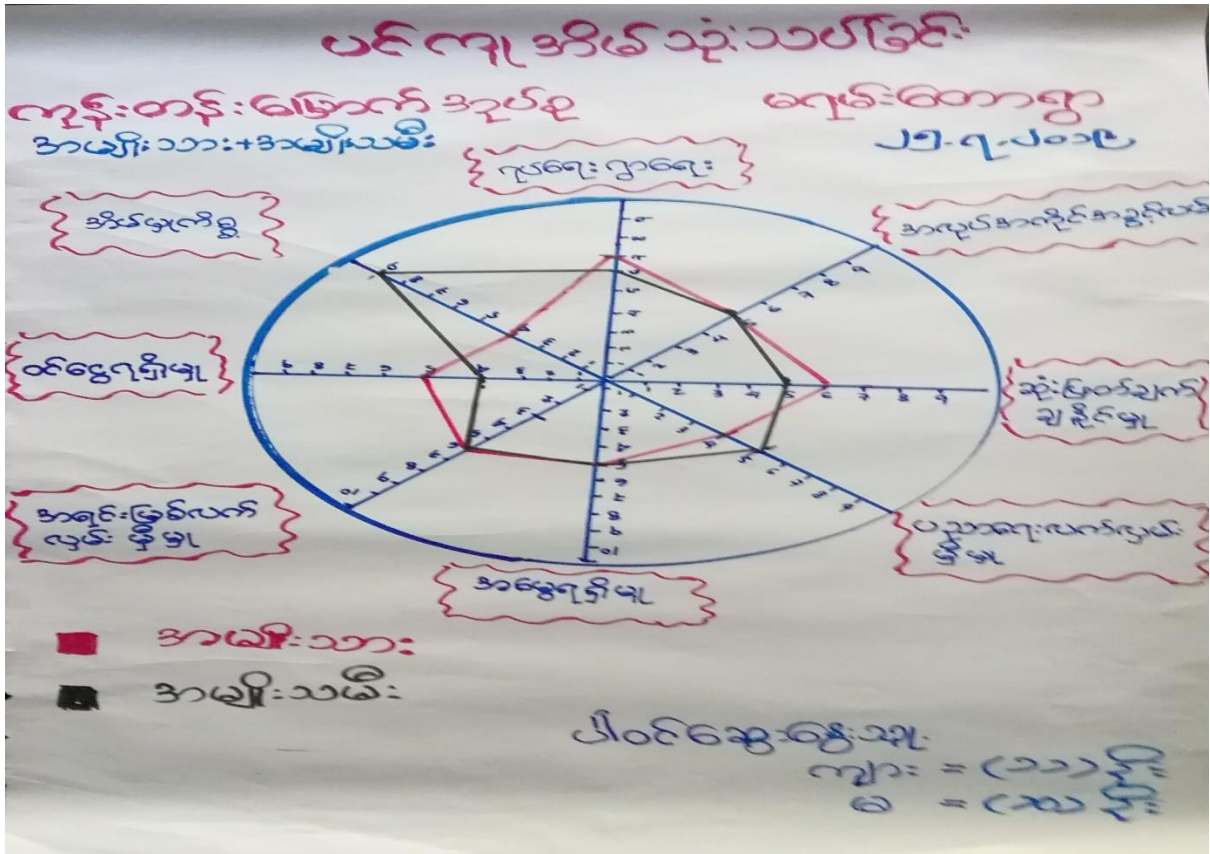 ပင့်ကူအိမ်သုံးသပ်ခြင်း
ကုန်းတန်းမြောက်အုပ်စု
မရမ်းတောရွာ
အမျိုးသား+အမျိုးသမီး
၂၅-၇-၂၀၁၉
ရပ်ရေးရွာရေး
အိမ်မှုကိစ္စ
အလုပ်အကိုင်အခွင့်အလမ်း
ဝင်ငွေရရှိမှု
ဆုံးဖြတ်ချက်
ချနိုင်မှု
အရင်းမြစ်လက်
လှမ်းမှီမှု
ပညာရေးလက်လှမ်း
မှီမှု
အမွေရရှိမှု
အမျိုးသား
အမျိုးသမီး
ပါဝင်ဆွေးနွေးသူ
ကျား = (၁၁) ဦး
မ = (၁၀) ဦး